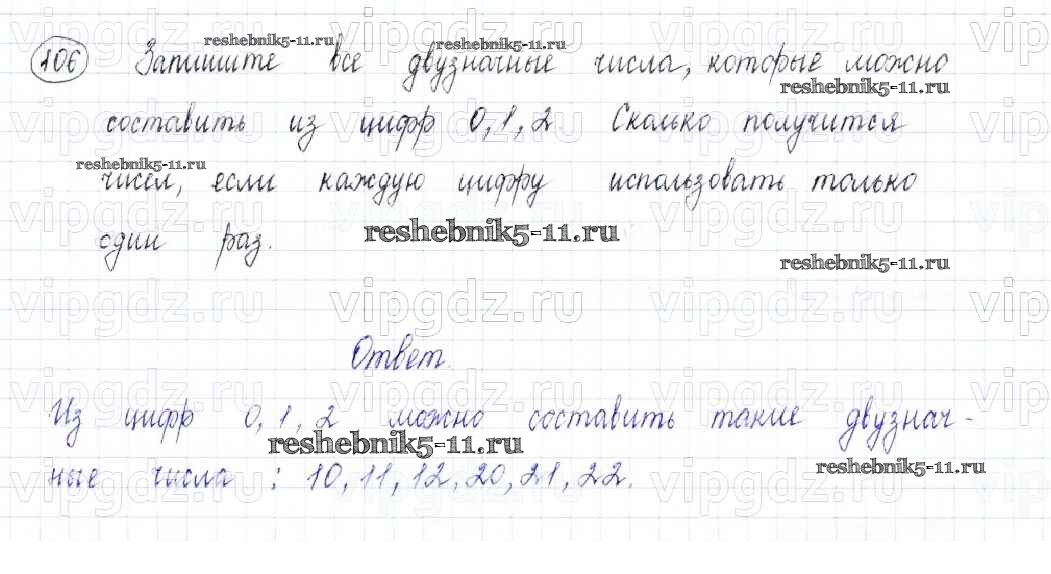 106 Запишите все двузначные числа, которые можно
составить из цифр 0, 1, 2 Сколько получится
чисел, если каждую цифру использовать только
один раз.
Ответ.
Из цифр 0, 1, 2 можно составить такие двузнач-
ные числа : 10, 11, 12, 20, 21, 22.
reshebnik5-11.ru
reshebnik5-11.ru
reshebnik5-11.ru
reshebnik5-11.ru
reshebnik5-11.ru
reshebnik5-11.ru
reshebnik5-11.ru
reshebnik5-11.ru
vipgdz.ru